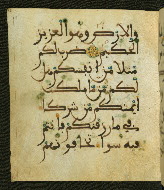 والارض وهو العزيز
الحكيم ضرب لكم
مثلا من انفسكم هل
لكم من ما ملكت
ايمنكم من شركا
في ما رزقنكم فانتم
فيه سوا تخافونهم